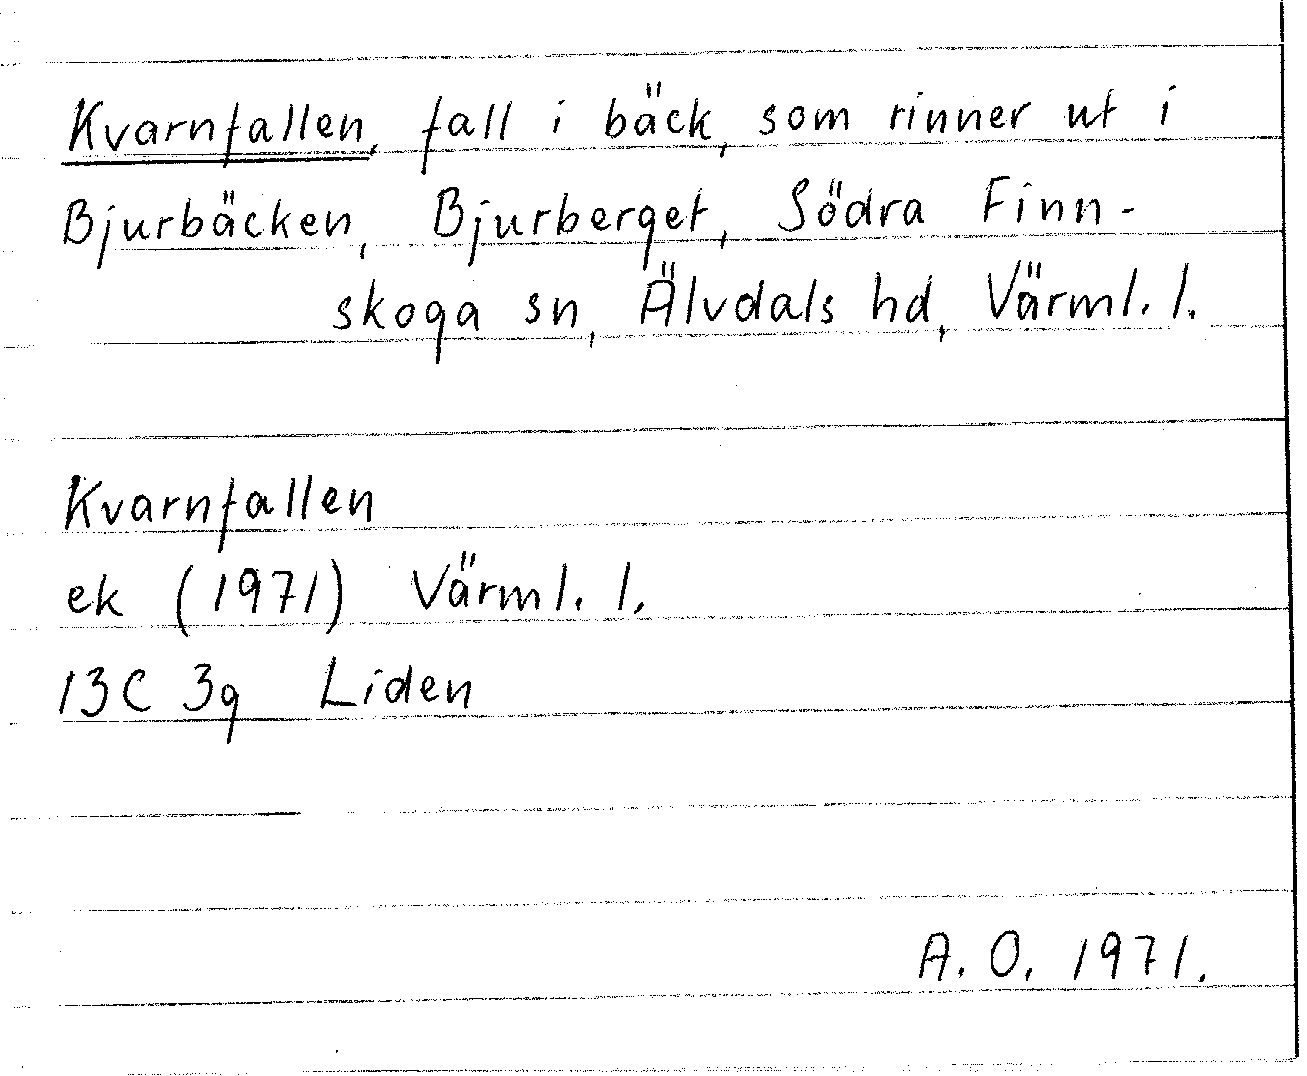 Kvarnfallen, fall i bäck, som rinner ut i
Bjurbäcken, Bjurberget, Södra Finn-
skoga sn, Älvdals hd, Värml. l.
Kvarnfallen
ek (1971) Värml. l.
13C 3g Liden
A. O. 1971.